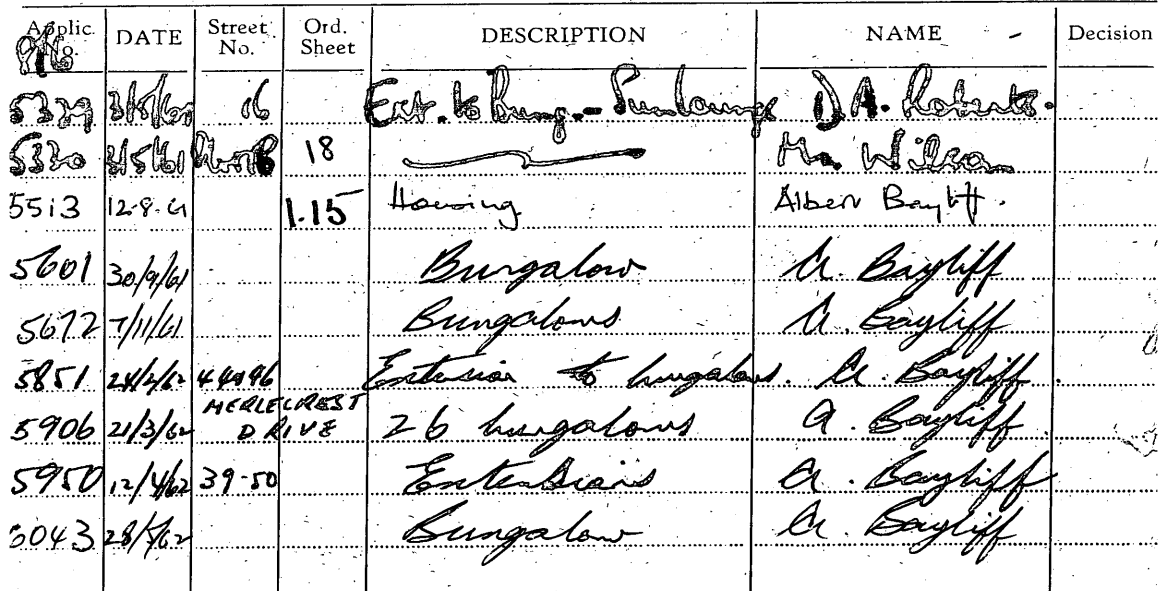 Applic. No. DATE Street No. Ord. Sheet DESCRIPTION NAME Decision
16 Ext. to bung.- Sunlounge D A. Roberts.
5330 18 Mr. Wilson
5513 12.8.61 1.15 Housing Albert Bayliff.
5601 30/9/61 Bungalow A. Bayliff
5672 7/11/61 Bungalows A. Bayliff
5851 24/2/62 Extension to bungalows. A. Bayliff
5906 21/3/62 MERLECREST DRIVE 26 bungalows A. Bayliff
5950 12/4/62 39-50 Extensions A. Bayliff
6043 Bungalow A. Bayliff